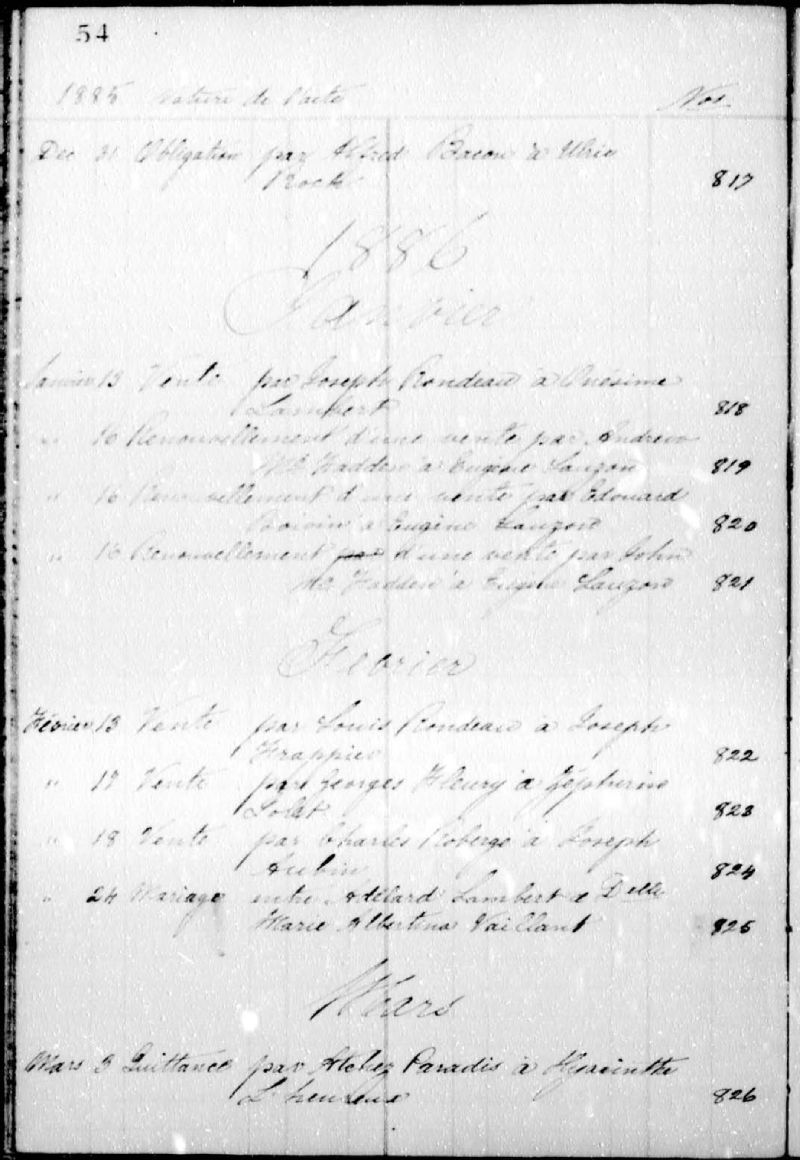 54
1885 Nature de l'acte Nos.
Dec 31 Obligation par Alfred Bacon à Ulric
Rock 817
1886
Janvier
Janvier 13 Vente par Joseph Rondeau à Onésime
Lambert 818
" 16 Renouvellement d'une vente par Andrew
Mc Fadden à Eugène Lauzon 819
" 16 Renouvellement d'une vente par Edouard
Boivin à Eugène Lauzon 820
" 16 Renouvellement par d'une vente par John
Mc Fadden à Eugène Lauzon 821
Fevrier
Février 13 Vente par Louis Rondeau à Joseph
Frappier 822
" 17 Vente par Georges Fleury à Zéphirin
Solet 823
" 18 Vente par Charles Roberge à Joseph
Aubin 824
" 24 Mariage entre Adélard Lambert & Delle
Marie Albertina Vaillant 825
Mars
Mars 3 Quittance par Paradis à Hyacinthe
L'heureux 826